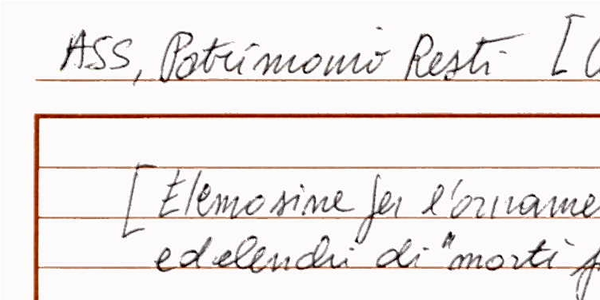 ASS, Patrimonio Resti [
[Elemosine per l'orname
ed elenchi di "morti